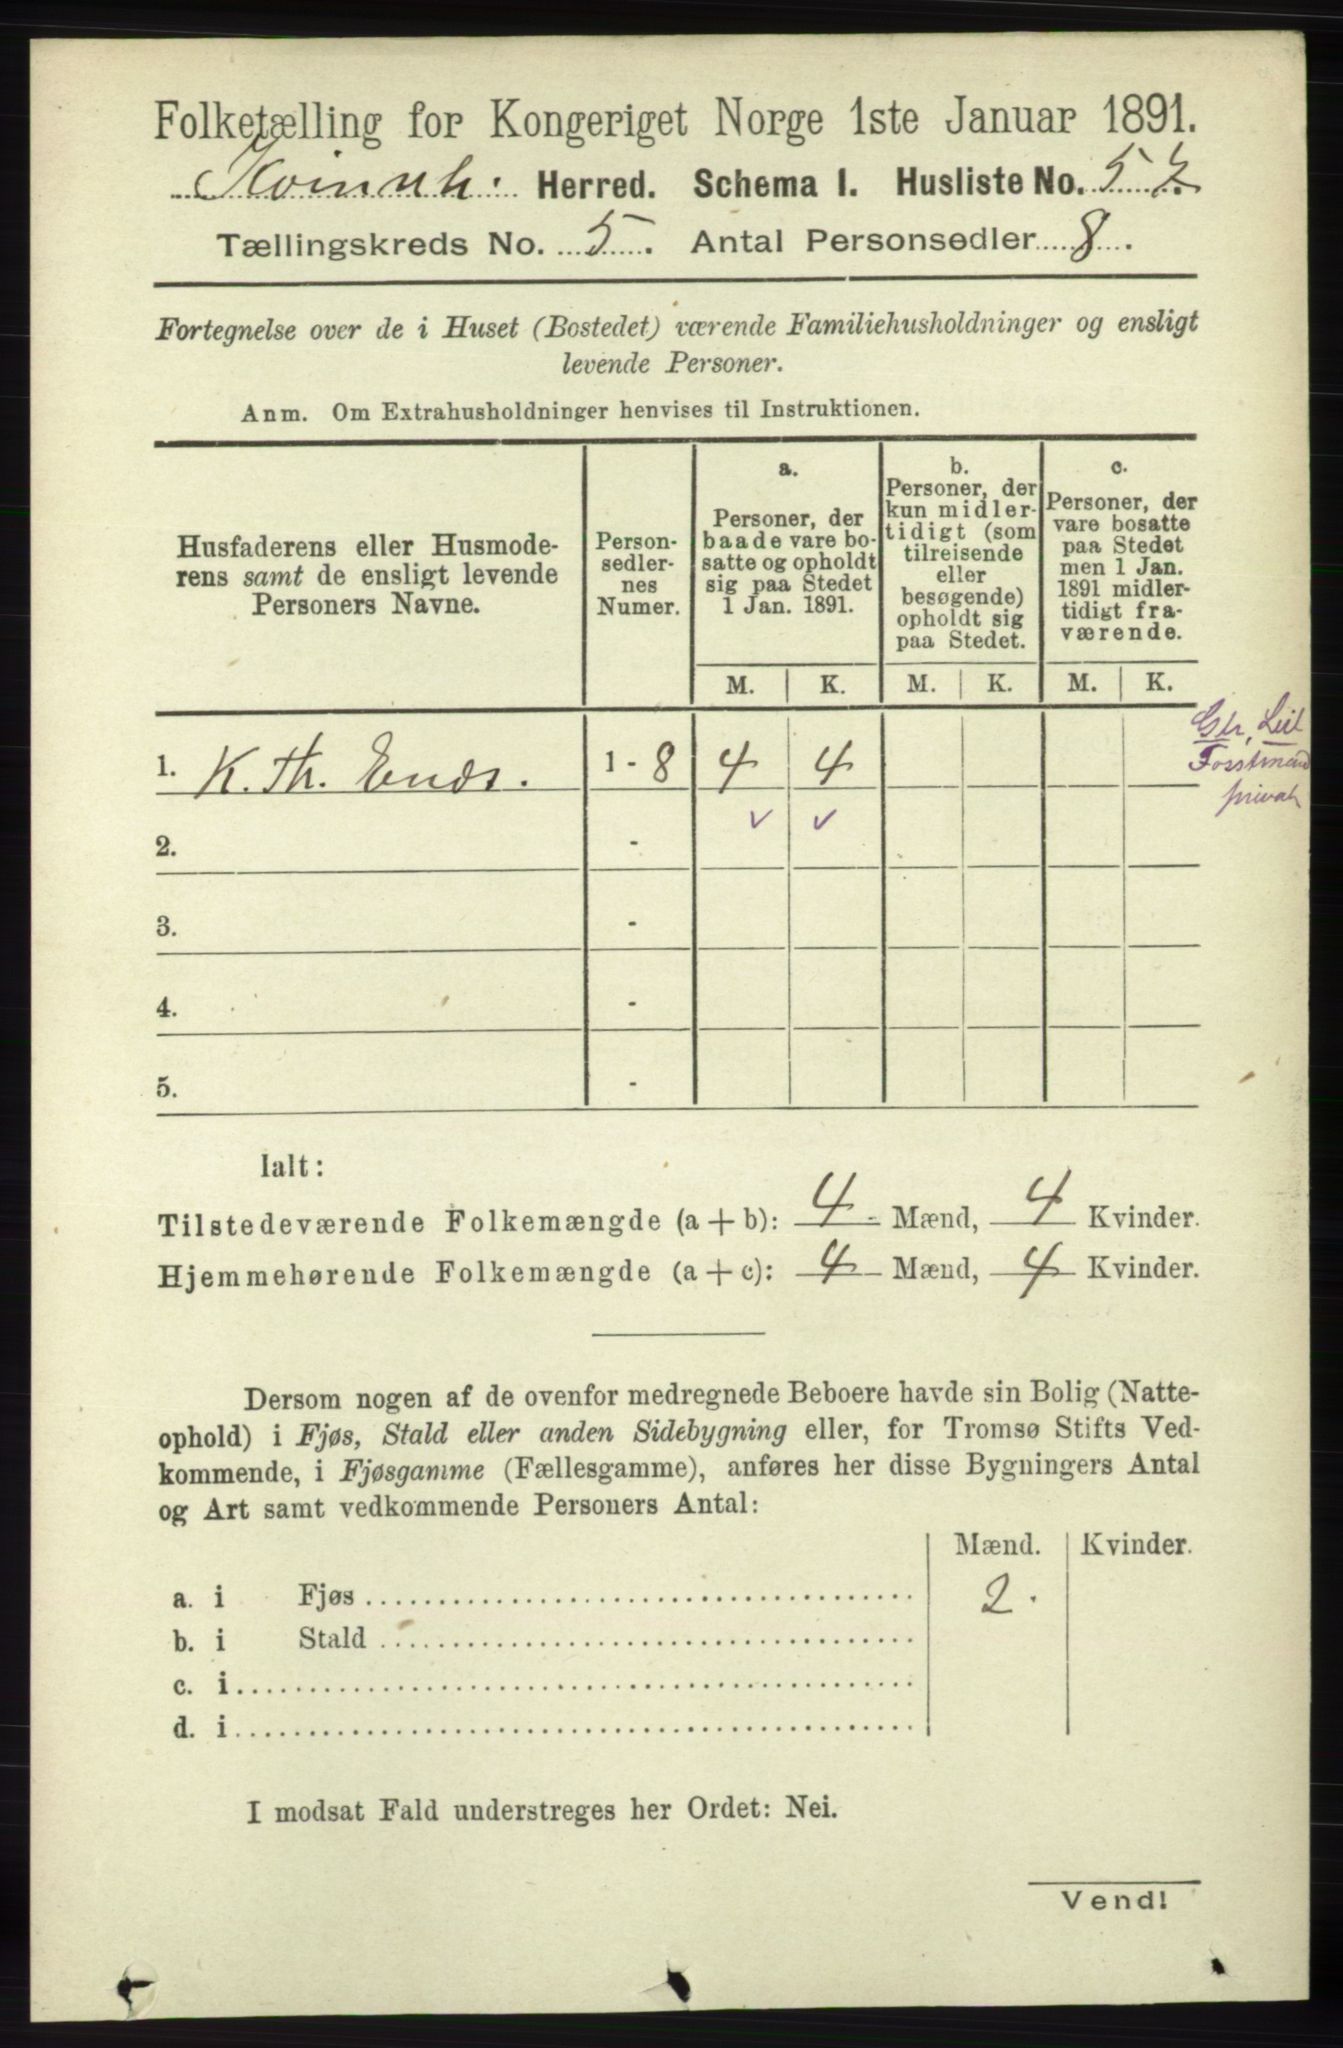 Folketælling for Kongeriget Norge 1ste Januar 1891.
Kvinnh. Herred. Schema I. Husliste No. 57.
Tællingskreds No. 5. Antal Personsedler 8.
Fortegnelse over de i Huset (Bostedet) værende Familiehusholdninger og ensligt
levende Personer.
Anm. Om Extrahusholdninger henvises til Instruktionen.
Husfaderens eller Husmode-
rens samt de ensligt levende
Personers Navne.
Person-
sedler-
nes
Numer.
a.
Personer, der
baade vare bo-
satte og opholdt
sig paa Stedet
1 Jan. 1891.
b.
Personer, der
kun midler-
tidigt (som
tilreisende
eller
besøgende)
opholdt sig
paa Stedet.
c.
Personer, der
vare bosatte
paa Stedet
men 1 Jan.
1891 midler-
tidigt fra-
værende.
M. K. M. K. M. K.
1. K. Th. 1 - 8 4 4
Gbr, Leil
Forstmand
privat
2. -
3. -
4. -
5. -
Ialt:
Tilstedeværende Folkemængde (a + b): 4 Mænd, 4 Kvinder.
Hjemmehørende Folkemængde (a + c): 4 Mænd, 4 Kvinder.
Dersom nogen af de ovenfor medregnede Beboere havde sin Bolig (Natte-
ophold) i Fjøs, Stald eller anden Sidebygning eller, for Tromsø Stifts Ved-
kommende, i Fjøsgamme (Fællesgamme), anføres her disse Bygningers Antal
og Art samt vedkommende Personers Antal:
Mænd. Kvinder.
a. i Fjøs 2.
b. i Stald
c. i
d. i
I modsat Fald understreges her Ordet: Nei.
Vend!